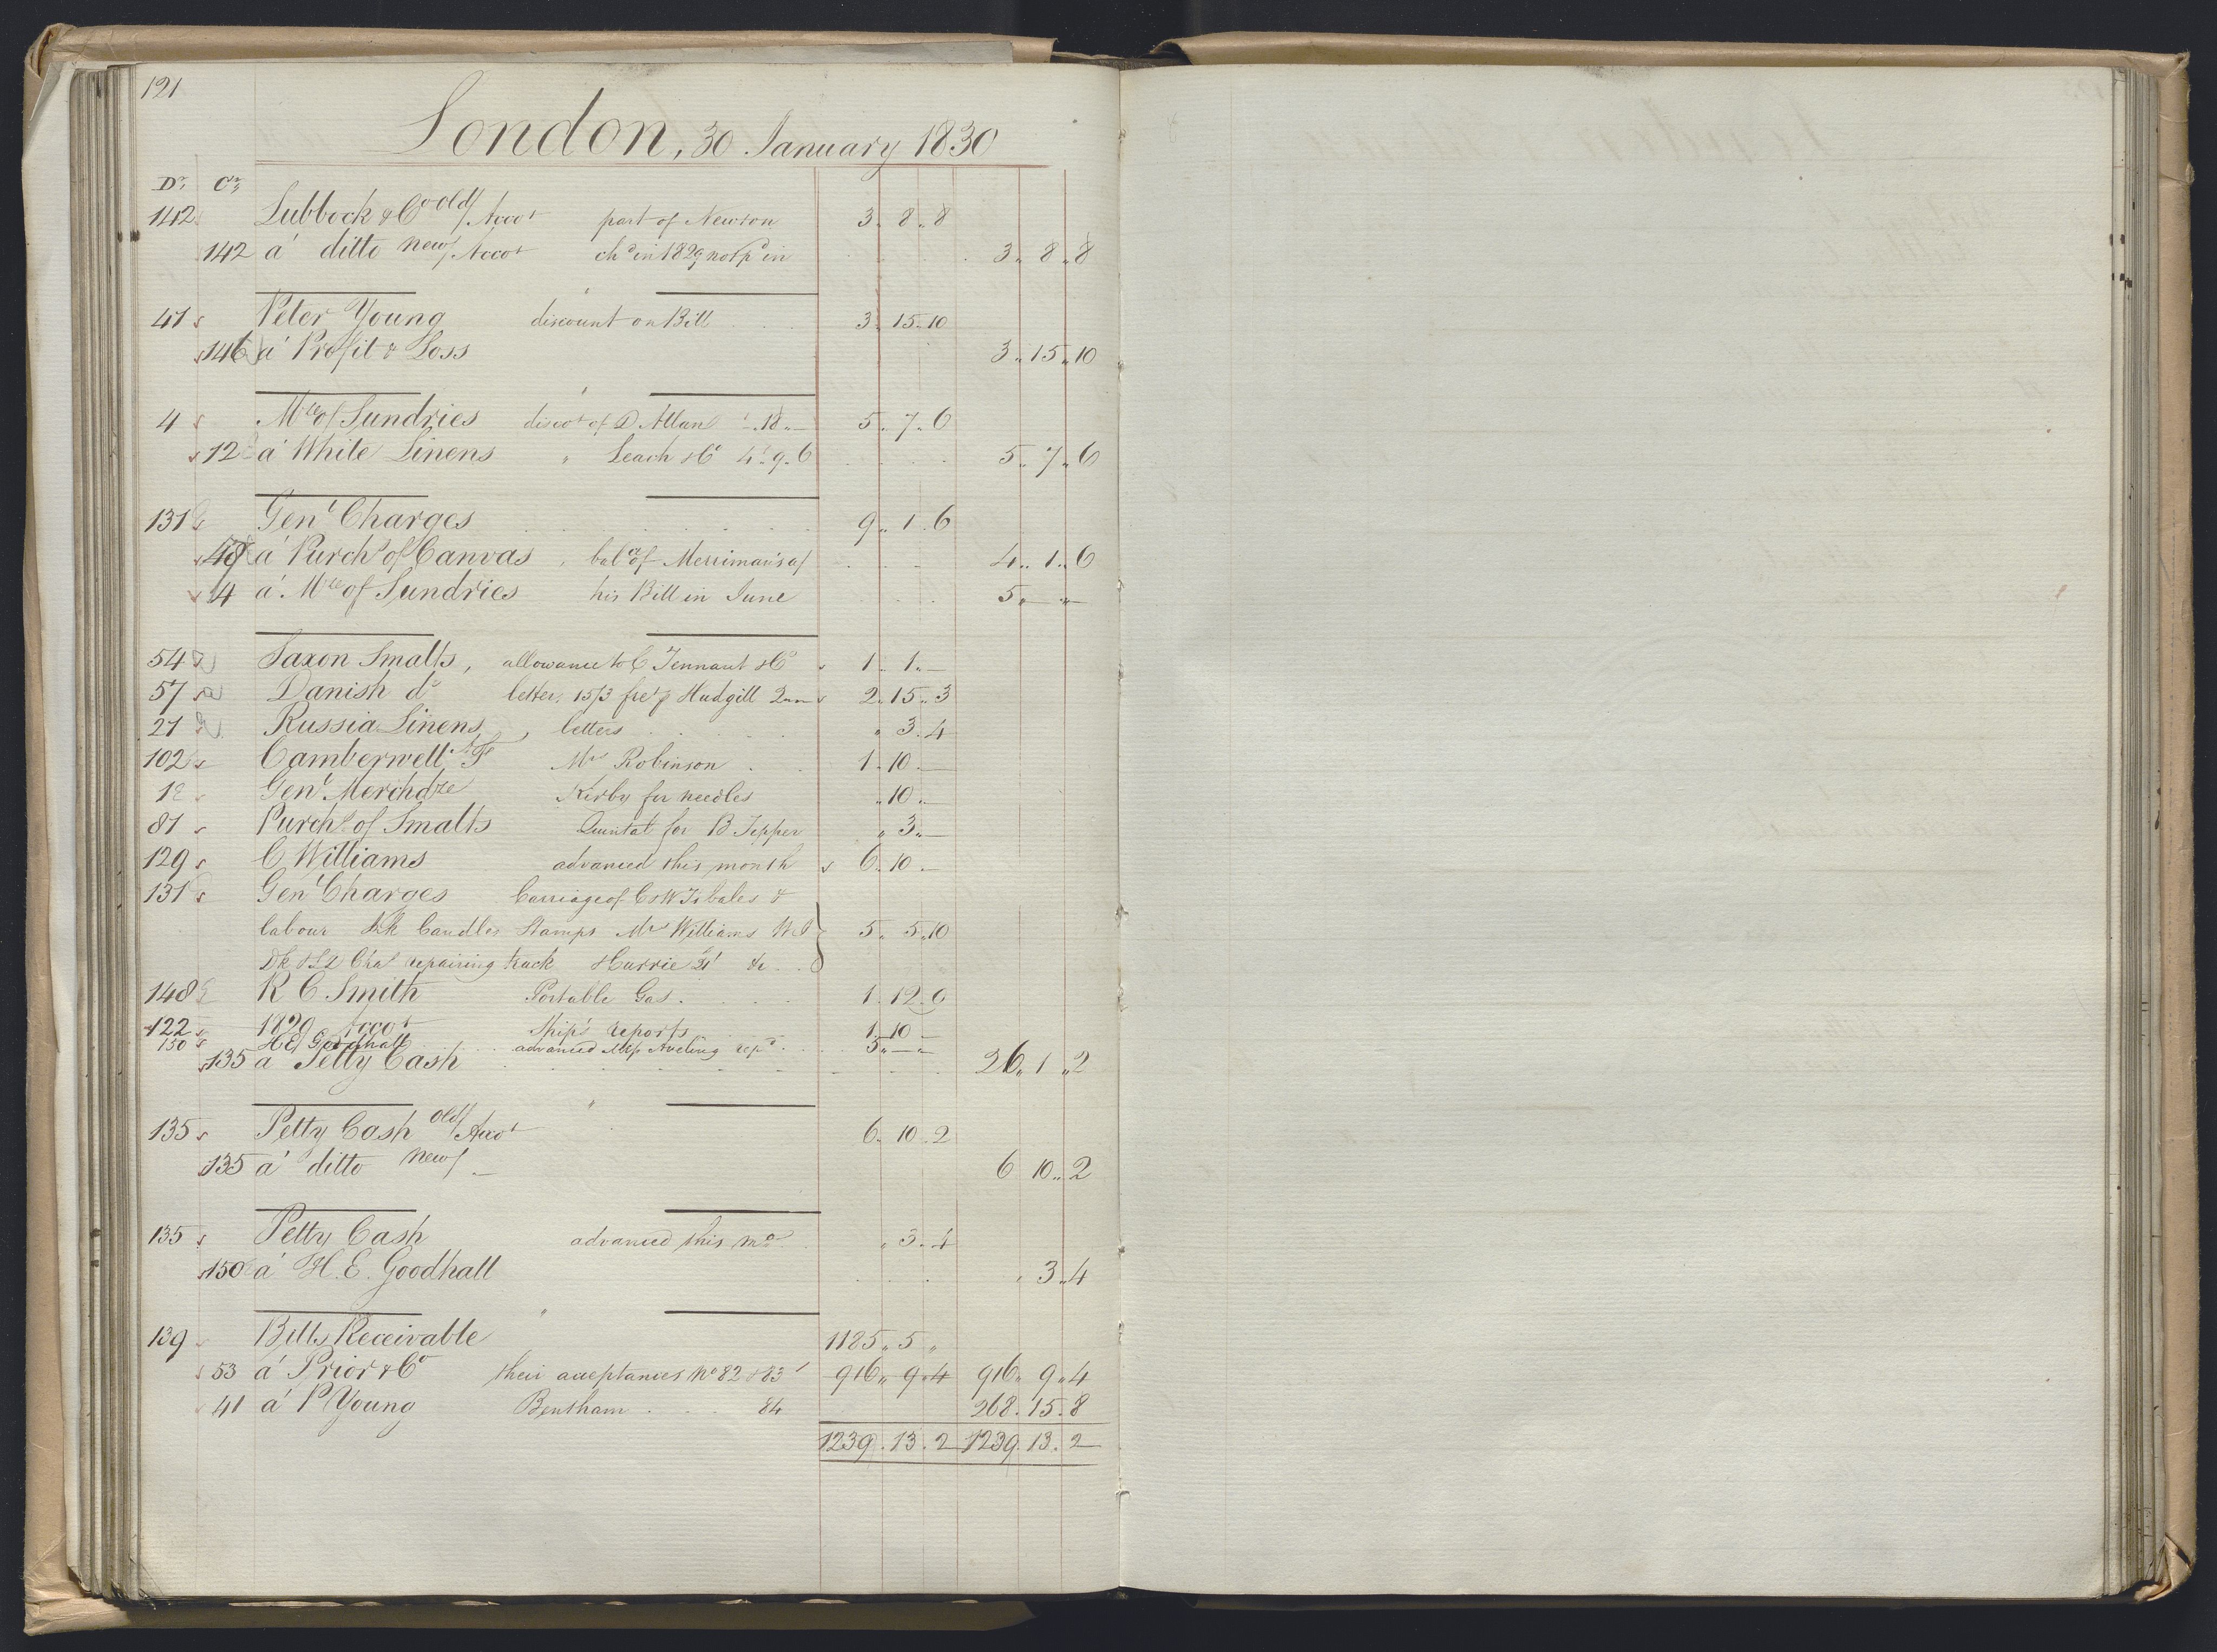 121
London, 30 January 1830
Dr. Cr.
142 Lubbock & Co old/ Accot part of Newton 3. 8. 8
142 á ditto new/ Accot chd in 1829 not pd in 3. 8. 8
41 Peter Young discount on Bill 3. 15. 10
146 á Profit & Loss 3. 15. 10
4 Mce of Sundries discot of D Allan -. 18. -  5. 7. 6
12 á White Linens " Leach & Co 4. 9. 6  5. 7. 6
131 Genl Charges 9. 1. 6
48 á Purchs of Canvas, bale of Merriman's a/ 4. 1. 6
4 á Mce of Sundries his Bill in June 5. - -
54 Saxon Smalts, allowance to C Tennant & Co 1. 1. -
57 Danish do letter, 15/3 fret p Hudgill 2. 15. 3
21 Russia Linens, letters " 3. 4
102 Camberwell Mr Robinson 1. 10. -
12 Genl Merchdze Kirby for needles " 10. -
81 Purchs of Smalts Quintal for B Tepper " 3. -
129 C Williams advanced this month 6. 10. -
131 Genl Charges Carriage of C & W Ts bales &
labour Candles Stamps Mr Williams 5. 5. 10
repairing truck &c
148 R C Smith Portable Gas. 1. 12. 6
122 1829 Accot Ship's reports 1. 10. -
150 H E Goodhall advanced Aveling 5. - -
135 á Petty Cash 26. 1. 2
135 Petty Cash old/ Accot 6. 10. 2
135 á ditto new/ - 6. 10. 2
135 Petty Cash advanced this mo " 3. 4
150 á H. E. Goodhall " 3. 4
139 Bills Receivable 1185. 5 "
53 á Prior & Co their acceptances No 82 & 83 916. 9. 4 916. 9. 4
41 á P Young Bentham 84 268. 15. 8
1239. 13. 2 1239. 13. 2